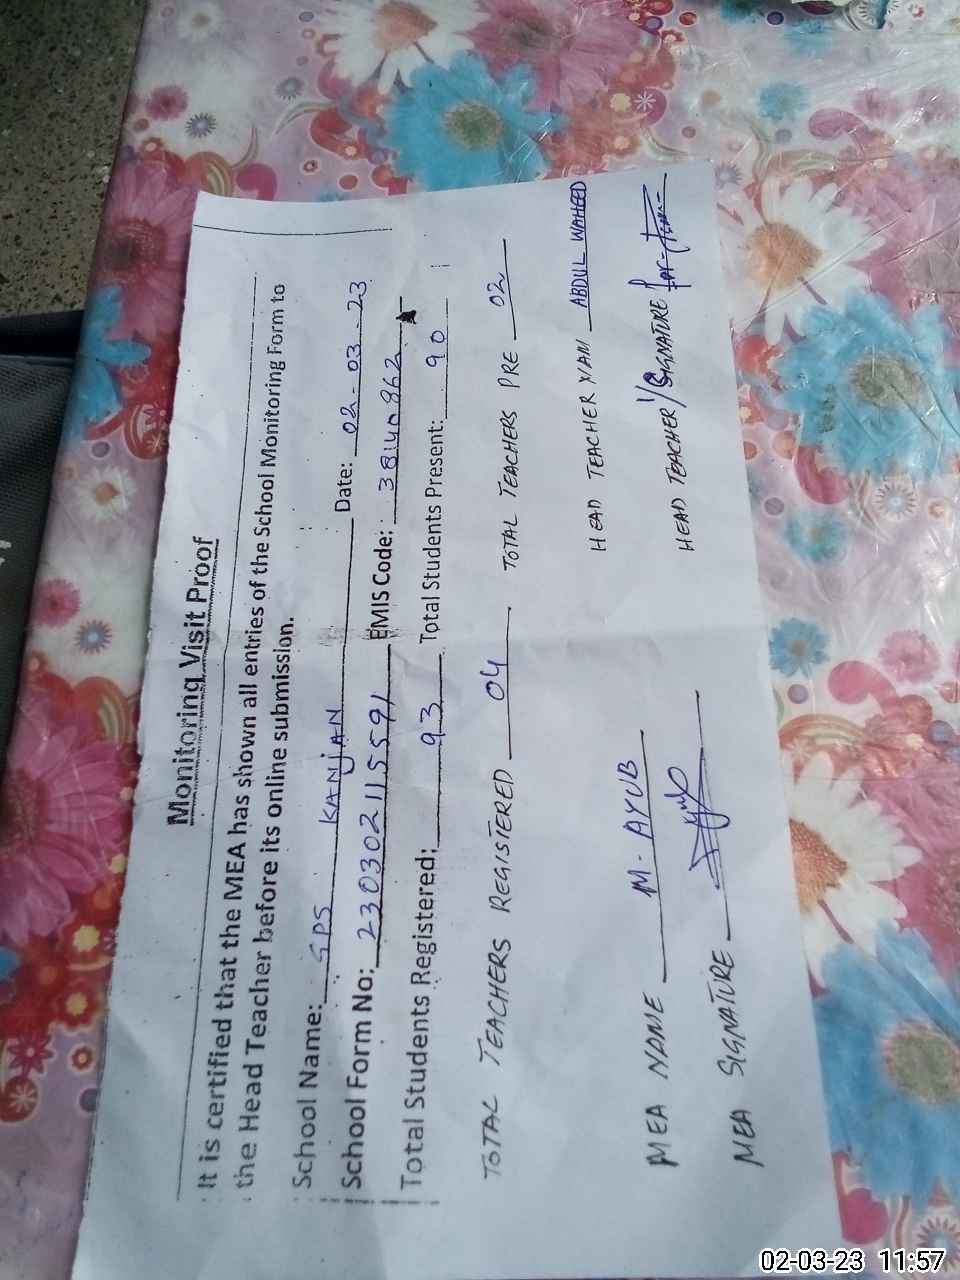 Monitoring Visit Proof
It is certified that the MEA has shown all entries of the School Monitoring Form to
the Head Teacher before its online submission.
School Name: GPS KANjAN Date: 02-03-23
School Form No: 230302115591 EMIS Code:
Total Students Registered: 93 Total Students Present: 90
TOTAL TEACHERS REGISTERED 04 TOTAL TEACHERS PRE 02
HEAD TEACHER NAM ABDUL WAHEED
MEA NAME M. AYUB
HEAD TEACHER SIGNATURE
MEA SIGNATURE
02-03-23 11:57